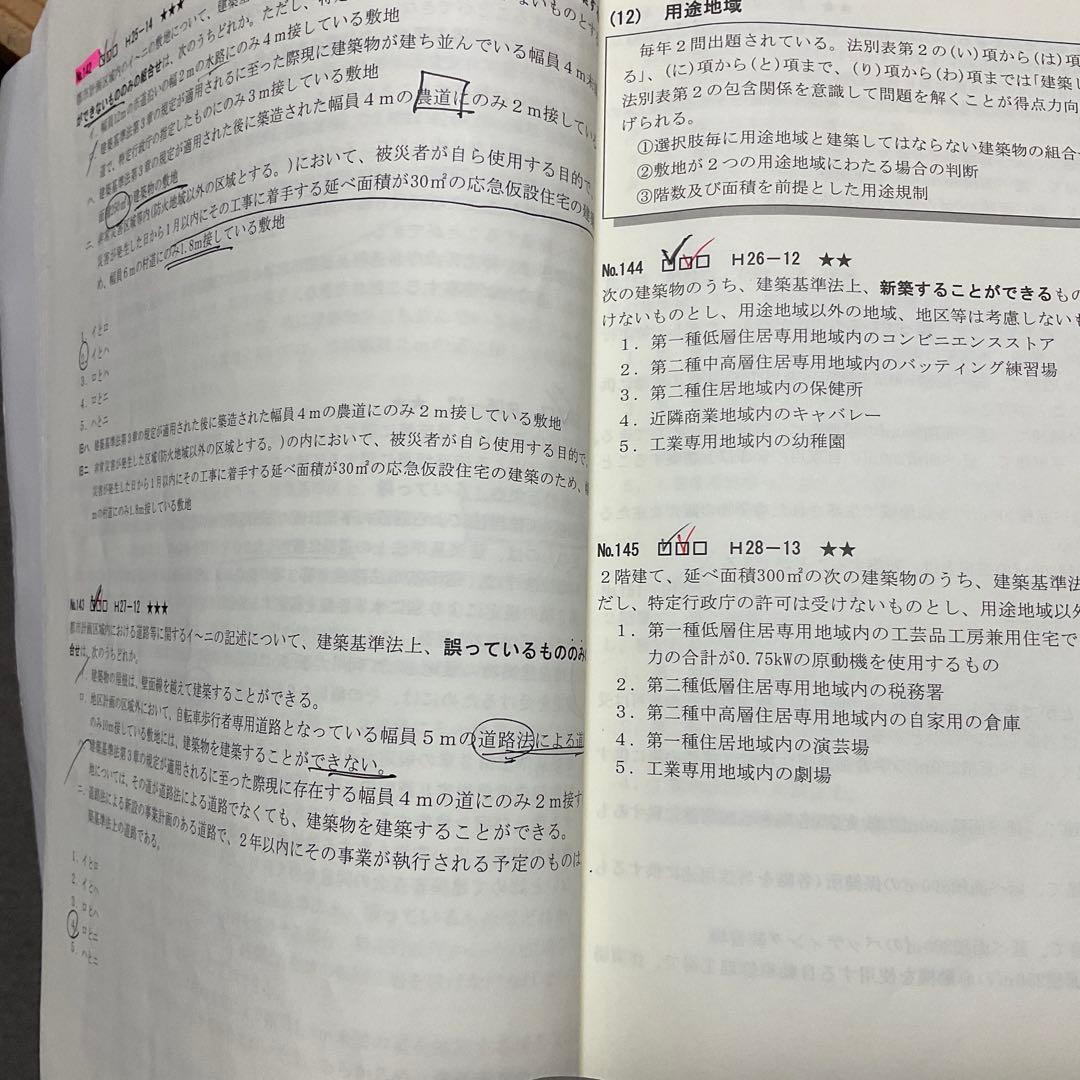 No.142 H26-14 ★★★
都市計画区域内のイ～ニの敷地について、建築基
ができないもののみの組合せは、次のうちどれか。ただし、特定
イ．幅員12mの市道沿いの幅2mの水路にのみ4m接している敷地
建築基準法第3章の規定が適用されるに至った際現に建築物が建ち並んでいる幅員4m未
道で、特定行政庁の指定したものにのみ3m接している敷地
ハ．建築基準法第3章の規定が適用された後に築造された幅員4mの農道にのみ2m接してい
面積250㎡の建築物の敷地
ニ．非常災害区域等内(防火地域以外の区域とする。)において、被災者が自ら使用する目的で、
災害が発生した日から1月以内にその工事に着手する延べ面積が30㎡の応急仮設住宅の建築
め、幅員6mの村道にのみ1.8m接している敷地
1．イとロ
2．イとハ
3．ロとハ
4．ロとニ
5．ハとニ
旧ハ．建築基準法第3章の規定が適用された後に築造された幅員4mの農道にのみ2m接している敷地
旧ニ．非常災害が発生した区域(防火地域以外の区域とする。)の内において、被災者が自ら使用する目的で、
災害が発生した日から1月以内にその工事に着手する延べ面積が30㎡の応急仮設住宅の建築のため、幅
mの村道にのみ1.8m接している敷地
No.143 H27-12 ★★★
都市計画区域内における道路等に関するイ～ニの記述について、建築基準法上、誤っているもののみの
合せは、次のうちどれか。
イ．建築物の屋根は、壁面線を越えて建築することができる。
ロ．地区計画の区域外において、自転車歩行者専用道路となっている幅員5mの道路法による道
のみ10m接している敷地には、建築物を建築することができない。
建築基準法第3章の規定が適用されるに至った際現に存在する幅員4mの道にのみ2m接す
地については、その道が道路法による道路でなくても、建築物を建築することができる。
ニ．道路法による新設の事業計画のある道路で、2年以内にその事業が執行される予定のものは
築基準法上の道路である。
1．イとロ
2．イとハ
3．ロとハ
4．ロとニ
5．ハとニ
(12) 用途地域
毎年2問出題されている。法別表第2の(い)項から(は)項
る」、(に)項から(と)項まで、(り)項から(わ)項までは「建築し
法別表第2の包含関係を意識して問題を解くことが得点力向
げられる。
①選択肢毎に用途地域と建築してはならない建築物の組合
②敷地が2つの用途地域にわたる場合の判断
③階数及び面積を前提とした用途規制
No.144 H26-12 ★★
次の建築物のうち、建築基準法上、新築することができるもの
けないものとし、用途地域以外の地域、地区等は考慮しないも
1．第一種低層住居専用地域内のコンビニエンスストア
2．第二種中高層住居専用地域内のバッティング練習場
3．第二種住居地域内の保健所
4．近隣商業地域内のキャバレー
5．工業専用地域内の幼稚園
No.145 H28-13 ★★
2階建て、延べ面積300㎡の次の建築物のうち、建築基準法
だし、特定行政庁の許可は受けないものとし、用途地域以外
1．第一種低層住居専用地域内の工芸品工房兼用住宅で
力の合計が0.75kWの原動機を使用するもの
2．第二種低層住居専用地域内の税務署
3．第二種中高層住居専用地域内の自家用の倉庫
4．第一種住居地域内の演芸場
5．工業専用地域内の劇場